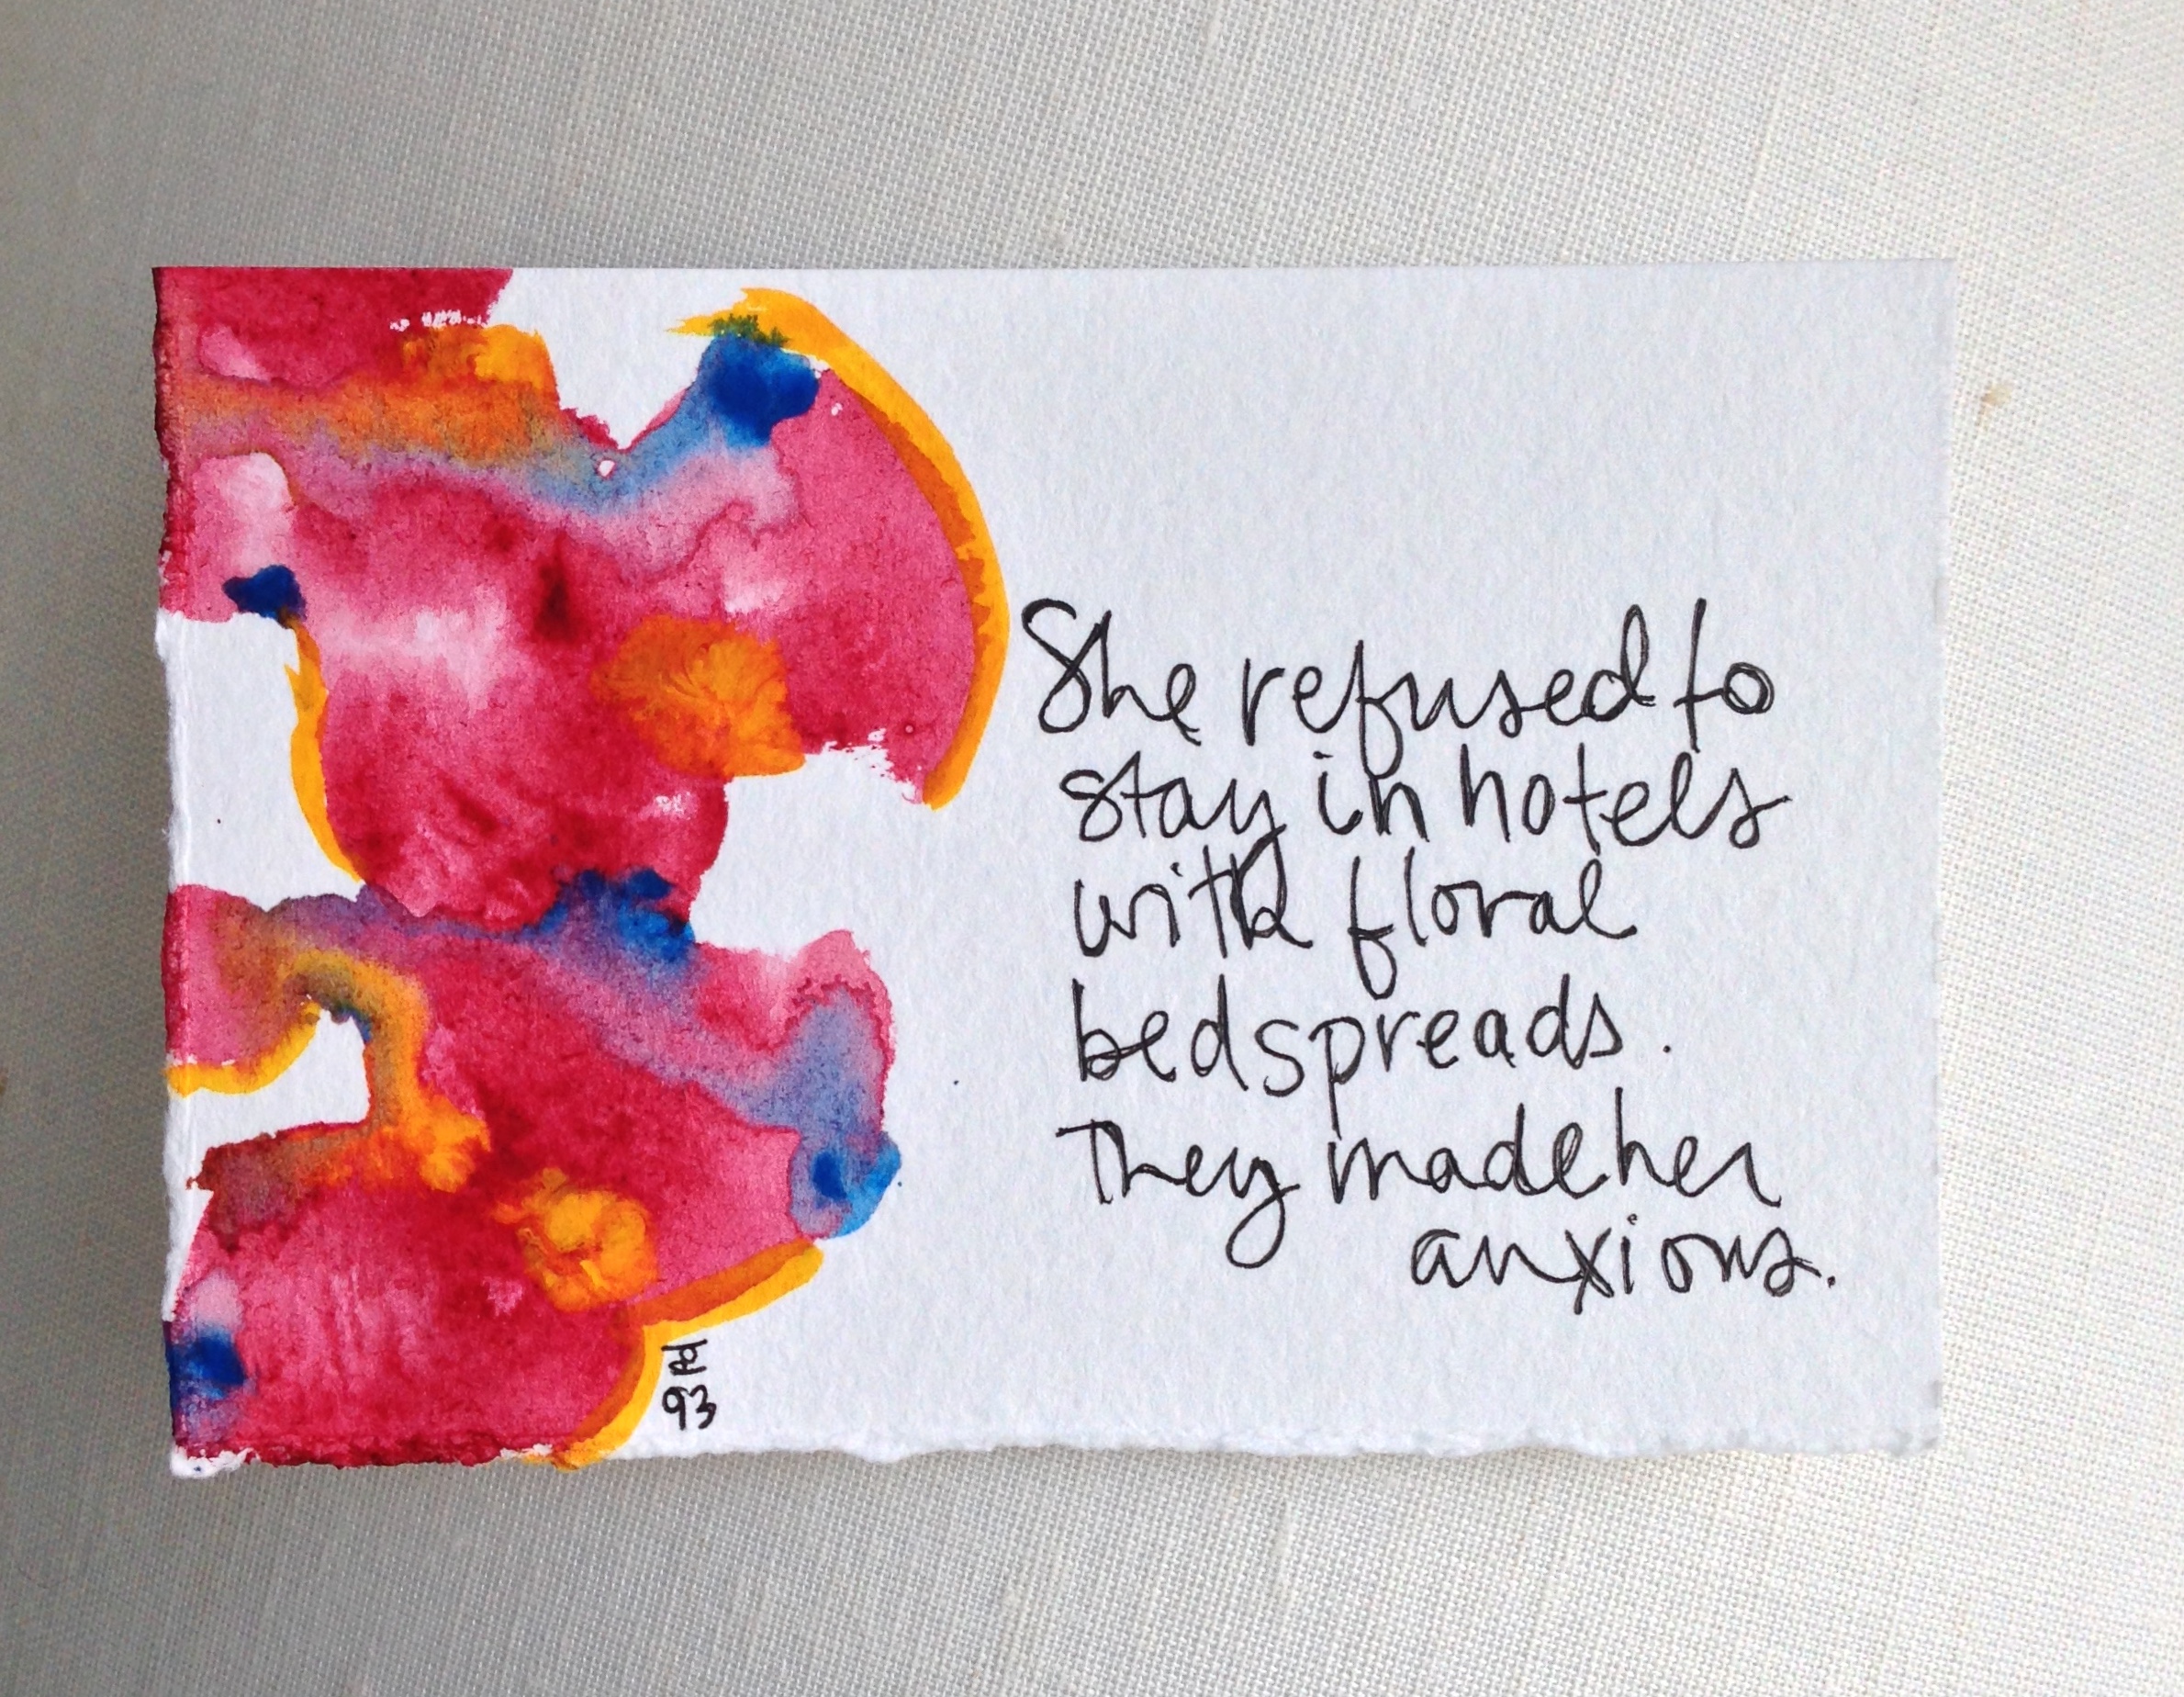 She refused to
stay in hotels
with floral
bedspreads.
They made her
anxious.
93